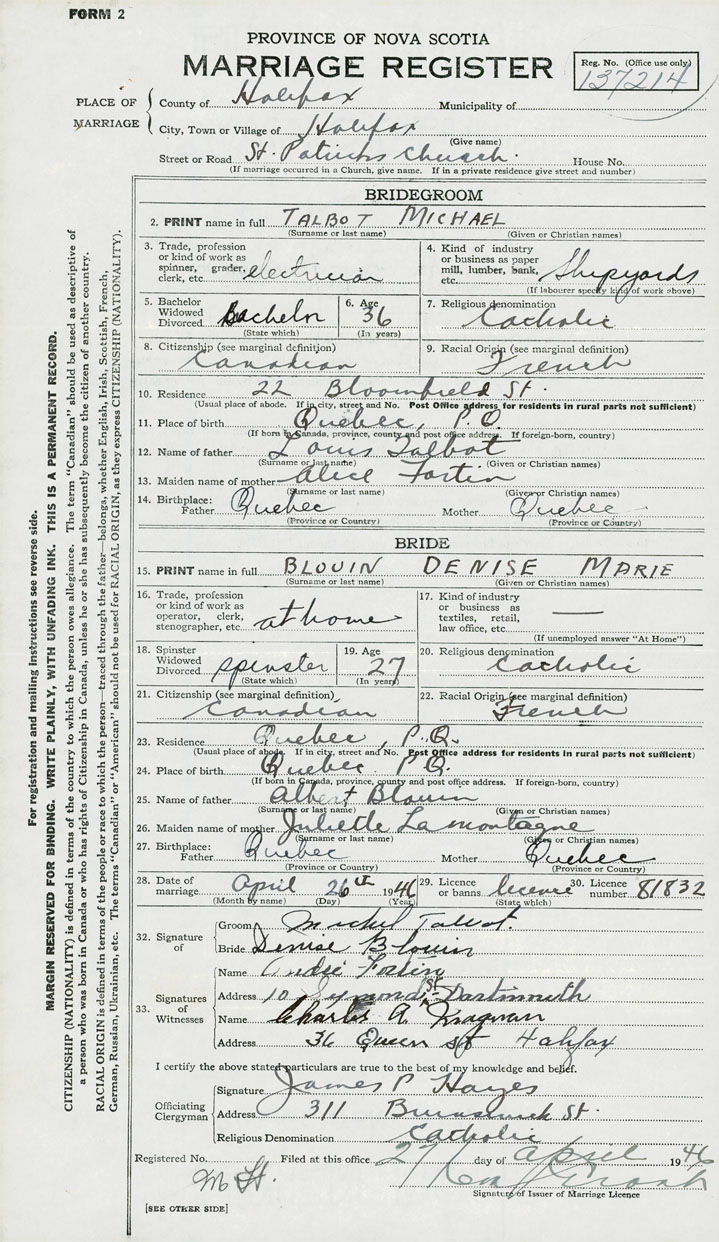 FORM 2
PROVINCE OF NOVA SCOTIA
MARRIAGE REGISTER
Reg. No. (Office use only)
137214
PLACE OF MARRIAGE
County of Halifax Municipality of
City, Town or Village of Halifax
(Give name)
Street or Road St. Patricks Church. House No.
(If marriage occurred in a Church, give name. If in a private residence give street and number)
BRIDEGROOM
2. PRINT name in full TALBOT MICHAEL
(Surname or last name) (Given or Christian names)
3. Trade, profession or kind of work as spinner, grader, clerk, etc. electrician
4. Kind of industry or business as paper mill, lumber, bank, etc. Shipyards
(If labourer specify kind of work above)
5. Bachelor Widowed Divorced Bachelor
(State which)
6. Age 36
(In years)
7. Religious denomination Catholic
8. Citizenship (see marginal definition) Canadian
9. Racial Origin (see marginal definition) French
10. Residence 22 Bloomfield St.
(Usual place of abode. If in city, street and No. Post Office address for residents in rural parts not sufficient)
11. Place of birth Quebec, P.Q.
(If born in Canada, province, county and post office address. If foreign-born, country)
12. Name of father Louis Talbot
(Surname or last name) (Given or Christian names)
13. Maiden name of mother Alice Fortin
(Surname or last name) (Given or Christian names)
14. Birthplace: Father Quebec Mother Quebec
(Province or Country) (Province or Country)
BRIDE
15. PRINT name in full BLOUIN DENISE MARIE
(Surname or last name) (Given or Christian names)
16. Trade, profession or kind of work as operator, clerk, stenographer, etc. at home
17. Kind of industry or business as textiles, retail, law office, etc. —
(If unemployed answer "At Home")
18. Spinster Widowed Divorced spinster
(State which)
19. Age 27
(In years)
20. Religious denomination Catholic
21. Citizenship (see marginal definition) Canadian
22. Racial Origin (see marginal definition) French
23. Residence Quebec, P.Q.
(Usual place of abode. If in city, street and No. Post Office address for residents in rural parts not sufficient)
24. Place of birth Quebec P.Q.
(If born in Canada, province, county and post office address. If foreign-born, country)
25. Name of father Albert Blouin
(Surname or last name) (Given or Christian names)
26. Maiden name of mother Juliette Lamontagne
(Surname or last name) (Given or Christian names)
27. Birthplace: Father Quebec Mother Quebec
(Province or Country) (Province or Country)
28. Date of marriage April 26th 1946
(Month by name) (Day) (Year)
29. Licence or banns licence
(State which)
30. Licence number 81832
32. Signature of
Groom Michel Talbot.
Bride Denise Blouin
33. Signatures of Witnesses
Name André Fortin
Address 10 St. Dartmouth
Name Charles A.
Address 36 Queen St Halifax
I certify the above stated particulars are true to the best of my knowledge and belief.
Officiating Clergyman
Signature James P Hayes
Address 311 Brunswick St.
Religious Denomination Catholic
Registered No. Filed at this office 27 day of April 1946
Signature of Issuer of Marriage Licence
[SEE OTHER SIDE]
For registration and mailing instructions see reverse side.
MARGIN RESERVED FOR BINDING. WRITE PLAINLY, WITH UNFADING INK. THIS IS A PERMANENT RECORD.
CITIZENSHIP (NATIONALITY) is defined in terms of the country to which the person owes allegiance. The term "Canadian" should be used as descriptive of
a person who was born in Canada or who has rights of Citizenship in Canada, unless he or she has subsequently become the citizen of another country.
RACIAL ORIGIN is defined in terms of the people or race to which the person—traced through the father—belongs, whether English, Irish, Scottish, French,
German, Russian, Ukrainian, etc. The terms "Canadian" or "American" should not be used for RACIAL ORIGIN, as they express CITIZENSHIP (NATIONALITY).